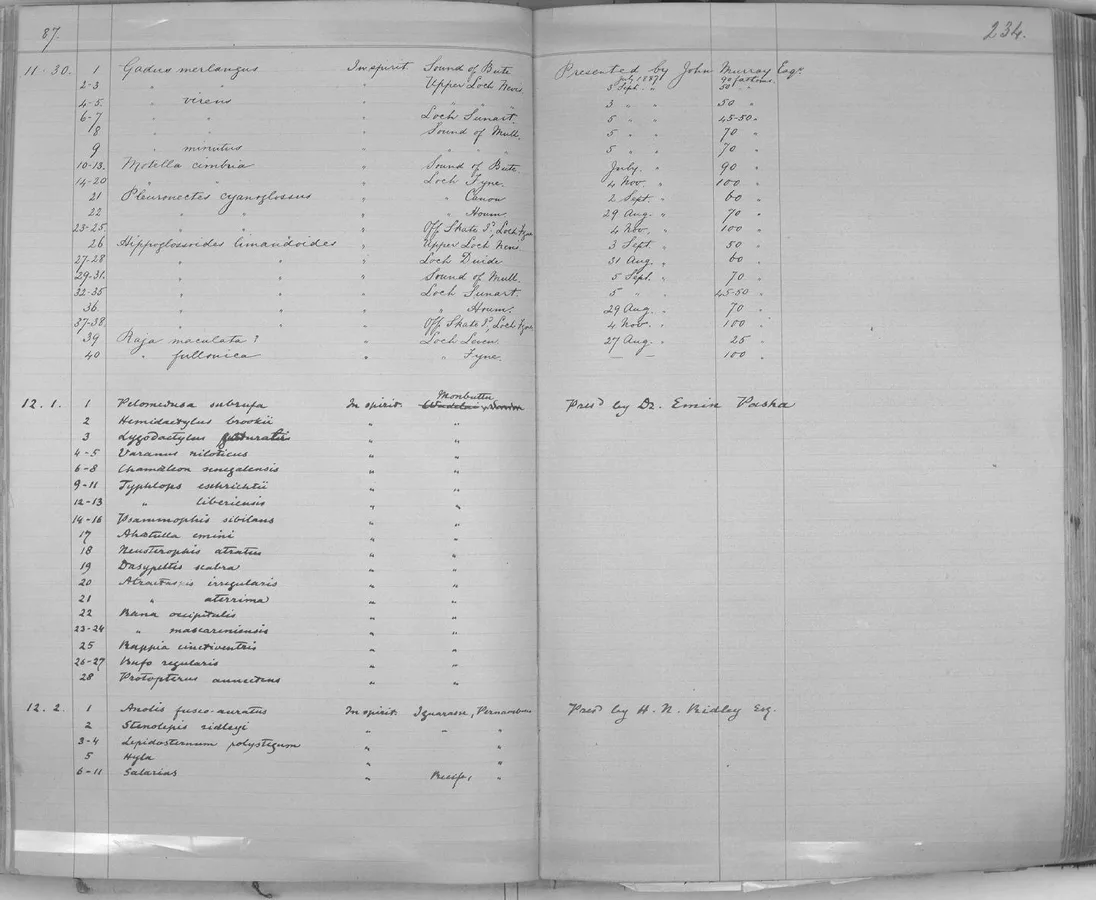 87. 234.
11. 30. 1 Gadus merlangus In spirit. Sound of Bute Presented by John Murray Esqr.
July 1887 90 fathoms.
2-3 " " " Upper Loch Nevis 3 Sept. " 50 "
4-5. " virens " " " " 3 " " 50 "
6-7 " " " Loch Sunart. 5 " " 45-50 "
8 " " " Sound of Mull. 5 " " 70 "
9 " minutus " " " " 5 " " 70 "
10-13. Motella cimbria " Sound of Bute July. " 90 "
14-20 " " " Loch Fyne. 4 Nov. " 100 "
21 Pleuronectes cyanoglossus " " Canou 2 Sept. " 60 "
22 " " " " Hourn. 29 Aug. " 70 "
23-25. " " " Off Skate Pt., Loch Fyne 4 Nov. " 100 "
26 Hippoglossoides limandoides " Upper Loch Nevis 3 Sept. " 50 "
27-28 " " " Loch Duich 31 Aug. " 60 "
29-31. " " " Sound of Mull. 5 Sept. " 70 "
32-35 " " " Loch Sunart. 5 " " 45-50 "
36 " " " " Hourn. 29 Aug. " 70 "
37-38. " " " Off Skate Pt., Loch Fyne 4 Nov. " 100 "
39 Raja maculata? " Loch Leven. 27 Aug. " 25 "
40 " fullonica " " Fyne. — — 100 "
Monbuttu
12. 1. 1 Pelomedusa subrufa In spirit. Presd by Dr. Emin Pasha
2 Hemidactylus brookii " "
3 Lygodactylus " "
4-5 Varanus niloticus " "
6-8 Chamæleon senegalensis " "
9-11 Typhlops eschrichtii " "
12-13 " liberiensis " "
14-16 Psammophis sibilans " "
17 Ahætulla emini " "
18 Neusterophis atratus " "
19 Dasypeltis scabra " "
20 Atractaspis irregularis " "
21 " aterrima " "
22 Rana occipitalis " "
23-24 " mascariniensis " "
25 Rappia cinctiventris " "
26-27 Bufo regularis " "
28 Protopterus annectens " "
12. 2. 1 Anolis fusco-auratus In spirit. Iguarasse, Pernambuco Presd by H. N. Ridley Esq.
2 Stenolepis ridleyi " " "
3-4 Lepidosternum polystegum " "
5 Hyla " "
6-11 Salarias " Recife, "